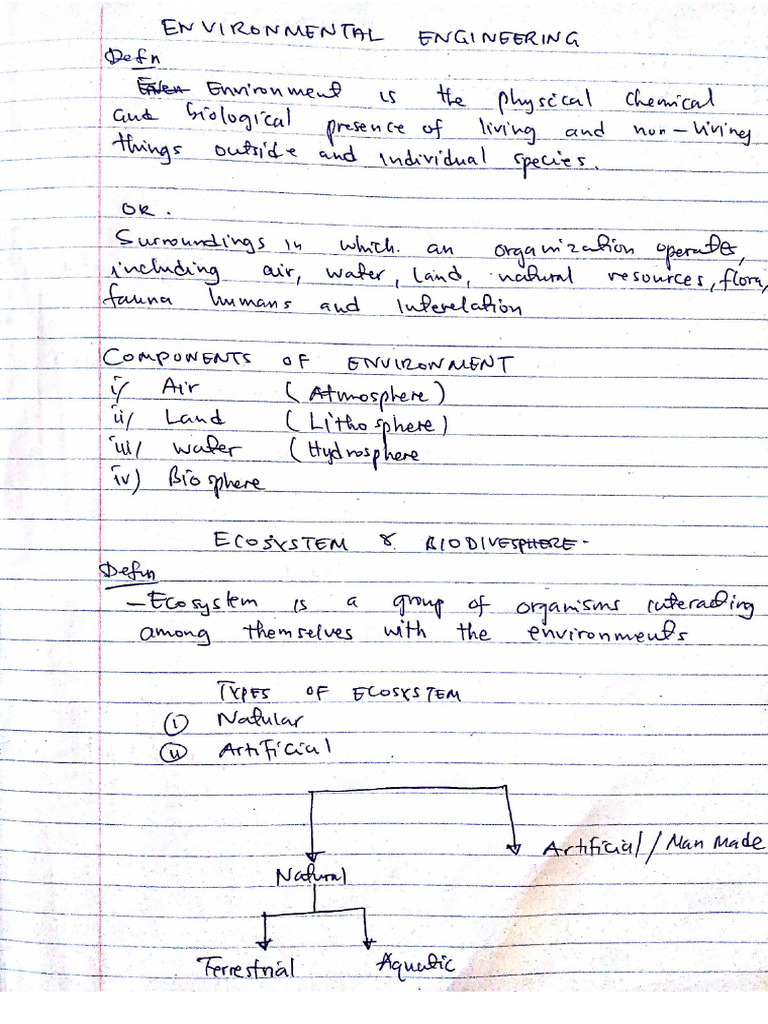 ENVIRONMENTAL ENGINEERING
Defn
Environment is the physical chemical
and biological presence of living and non-living
things outside and individual species.
OR.
Surroundings in which an organization operates,
including air, water, land, natural resources, flora,
fauna humans and Interelation
COMPONENTS OF ENVIRONMENT
i/ Air (Atmosphere)
ii/ Land (Lithosphere)
iii/ Water (Hydrosphere
iv) Biosphere
ECOSYSTEM & BIODIVESPHERE.
Defin
- Ecosystem is a group of organisms interacting
among themselves with the environments
TYPES OF ECOSYSTEM
(i) Natular
(ii) Artificial
Artificial / Man Made
Natural
Terrestrial Aquatic